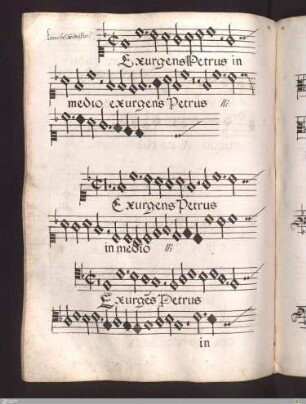 Exurgens Petrus in
medio exurgens Petrus
Exurgens Petrus
in medio
Exurgēs Petrus
in